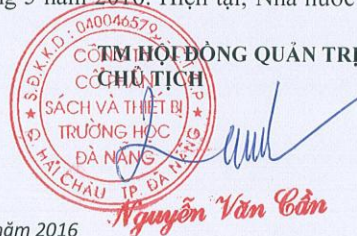 tháng 5 năm 2016. Hiện tại, Nhà nước
TM HỘI ĐỒNG QUẢN TRỊ
CHỦ TỊCH
S.Đ.K.K.D: 040046579
CÔNG TY
CỔ PHẦN
SÁCH VÀ THIẾT BỊ
TRƯỜNG HỌC
ĐÀ NẴNG
Q. HẢI CHÂU TP. ĐÀ NẴNG
Nguyễn Văn Cần
năm 2016